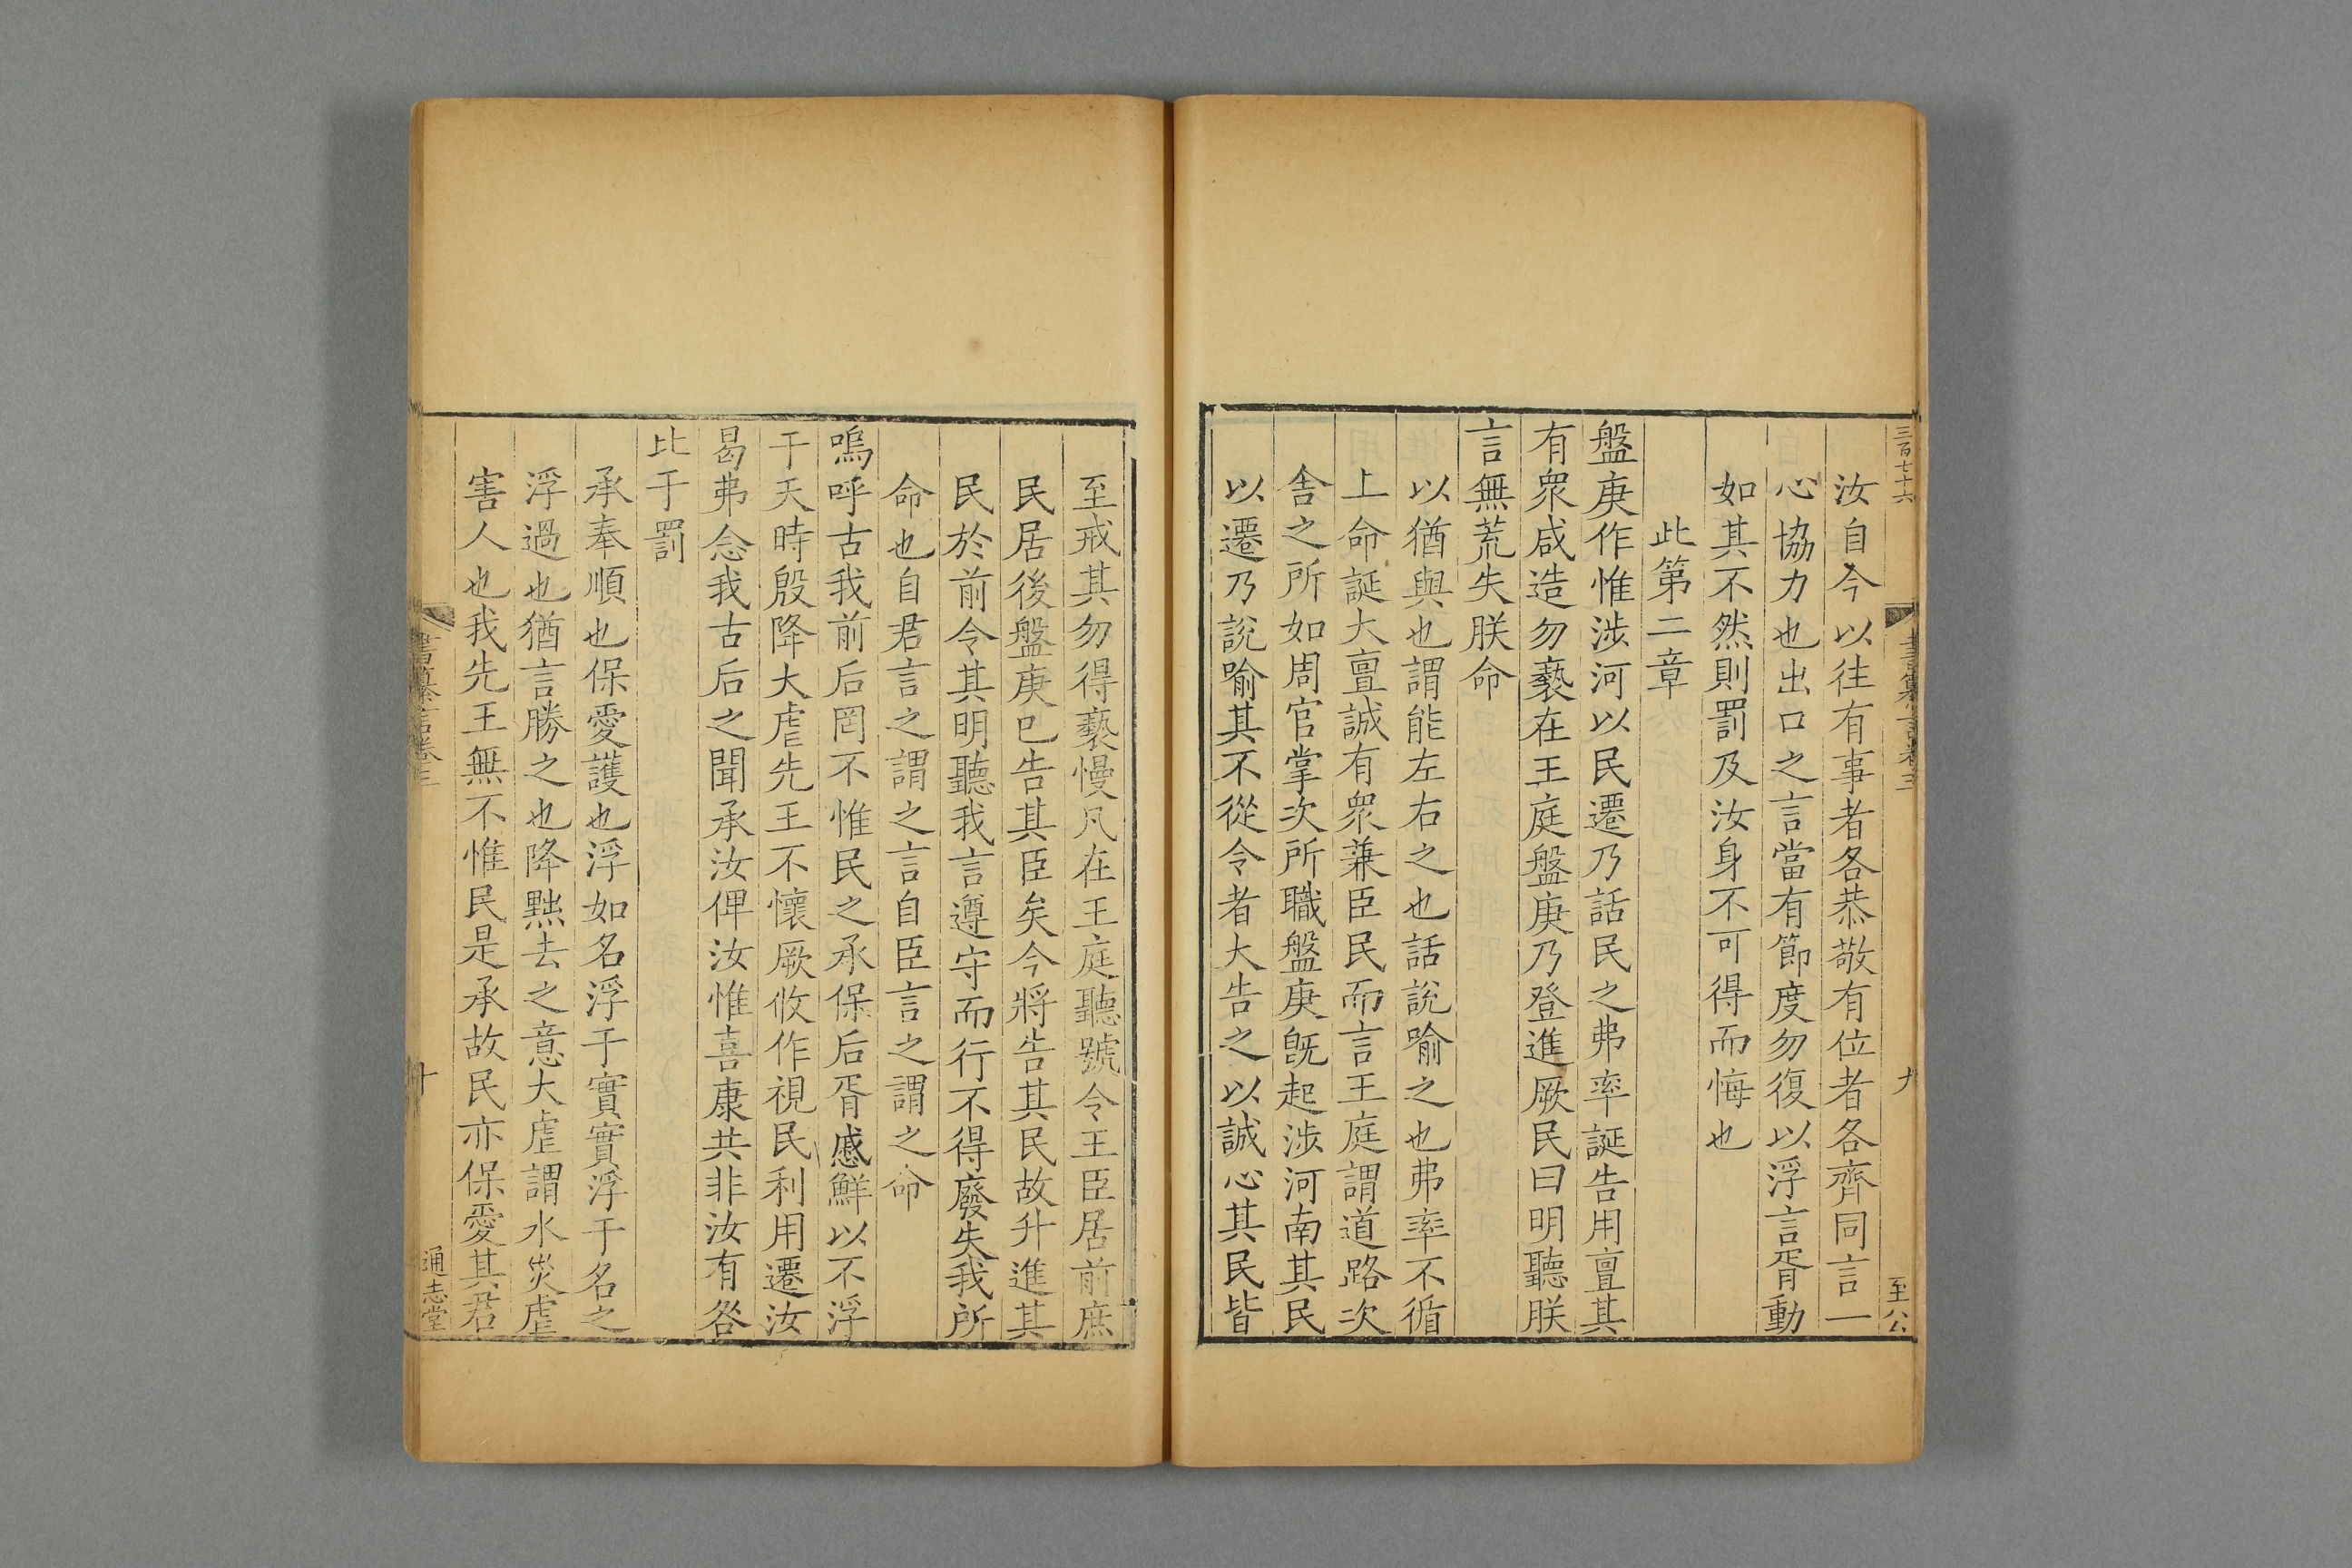 三百七十六
書纂言卷三
九
至公
汝自今以往有事者各恭敬有位者各齊同言一
心協力也出口之言當有節度勿復以浮言胥動
如其不然則罰及汝身不可得而悔也
此第二章
盤庚作惟涉河以民遷乃話民之弗率誕告用亶其
有衆咸造勿褻在王庭盤庚乃登進厥民曰明聽朕
言無荒失朕命
以猶與也謂能左右之也話說喻之也弗率不循
上命誕大亶誠有衆兼臣民而言王庭謂道路次
舍之所如周官掌次所職盤庚旣起涉河南其民
以遷乃說喻其不從令者大告之以誠心其民皆
至戒其勿得褻慢凡在王庭聽號令王臣居前庶
民居後盤庚巳告其臣矣今將告其民故升進其
民於前令其明聽我言遵守而行不得廢失我所
命也自君言之謂之言自臣言之謂之命
嗚呼古我前后罔不惟民之承保后胥慼鮮以不浮
于天時殷降大虐先王不懷厥攸作視民利用遷汝
曷弗念我古后之聞承汝俾汝惟喜康共非汝有咎
比于罰
承奉順也保愛護也浮如名浮于實實浮于名之
浮過也猶言勝之也降黜去之意大虐謂水災虐
害人也我先王無不惟民是承故民亦保愛其君
書纂言卷三
十
通志堂